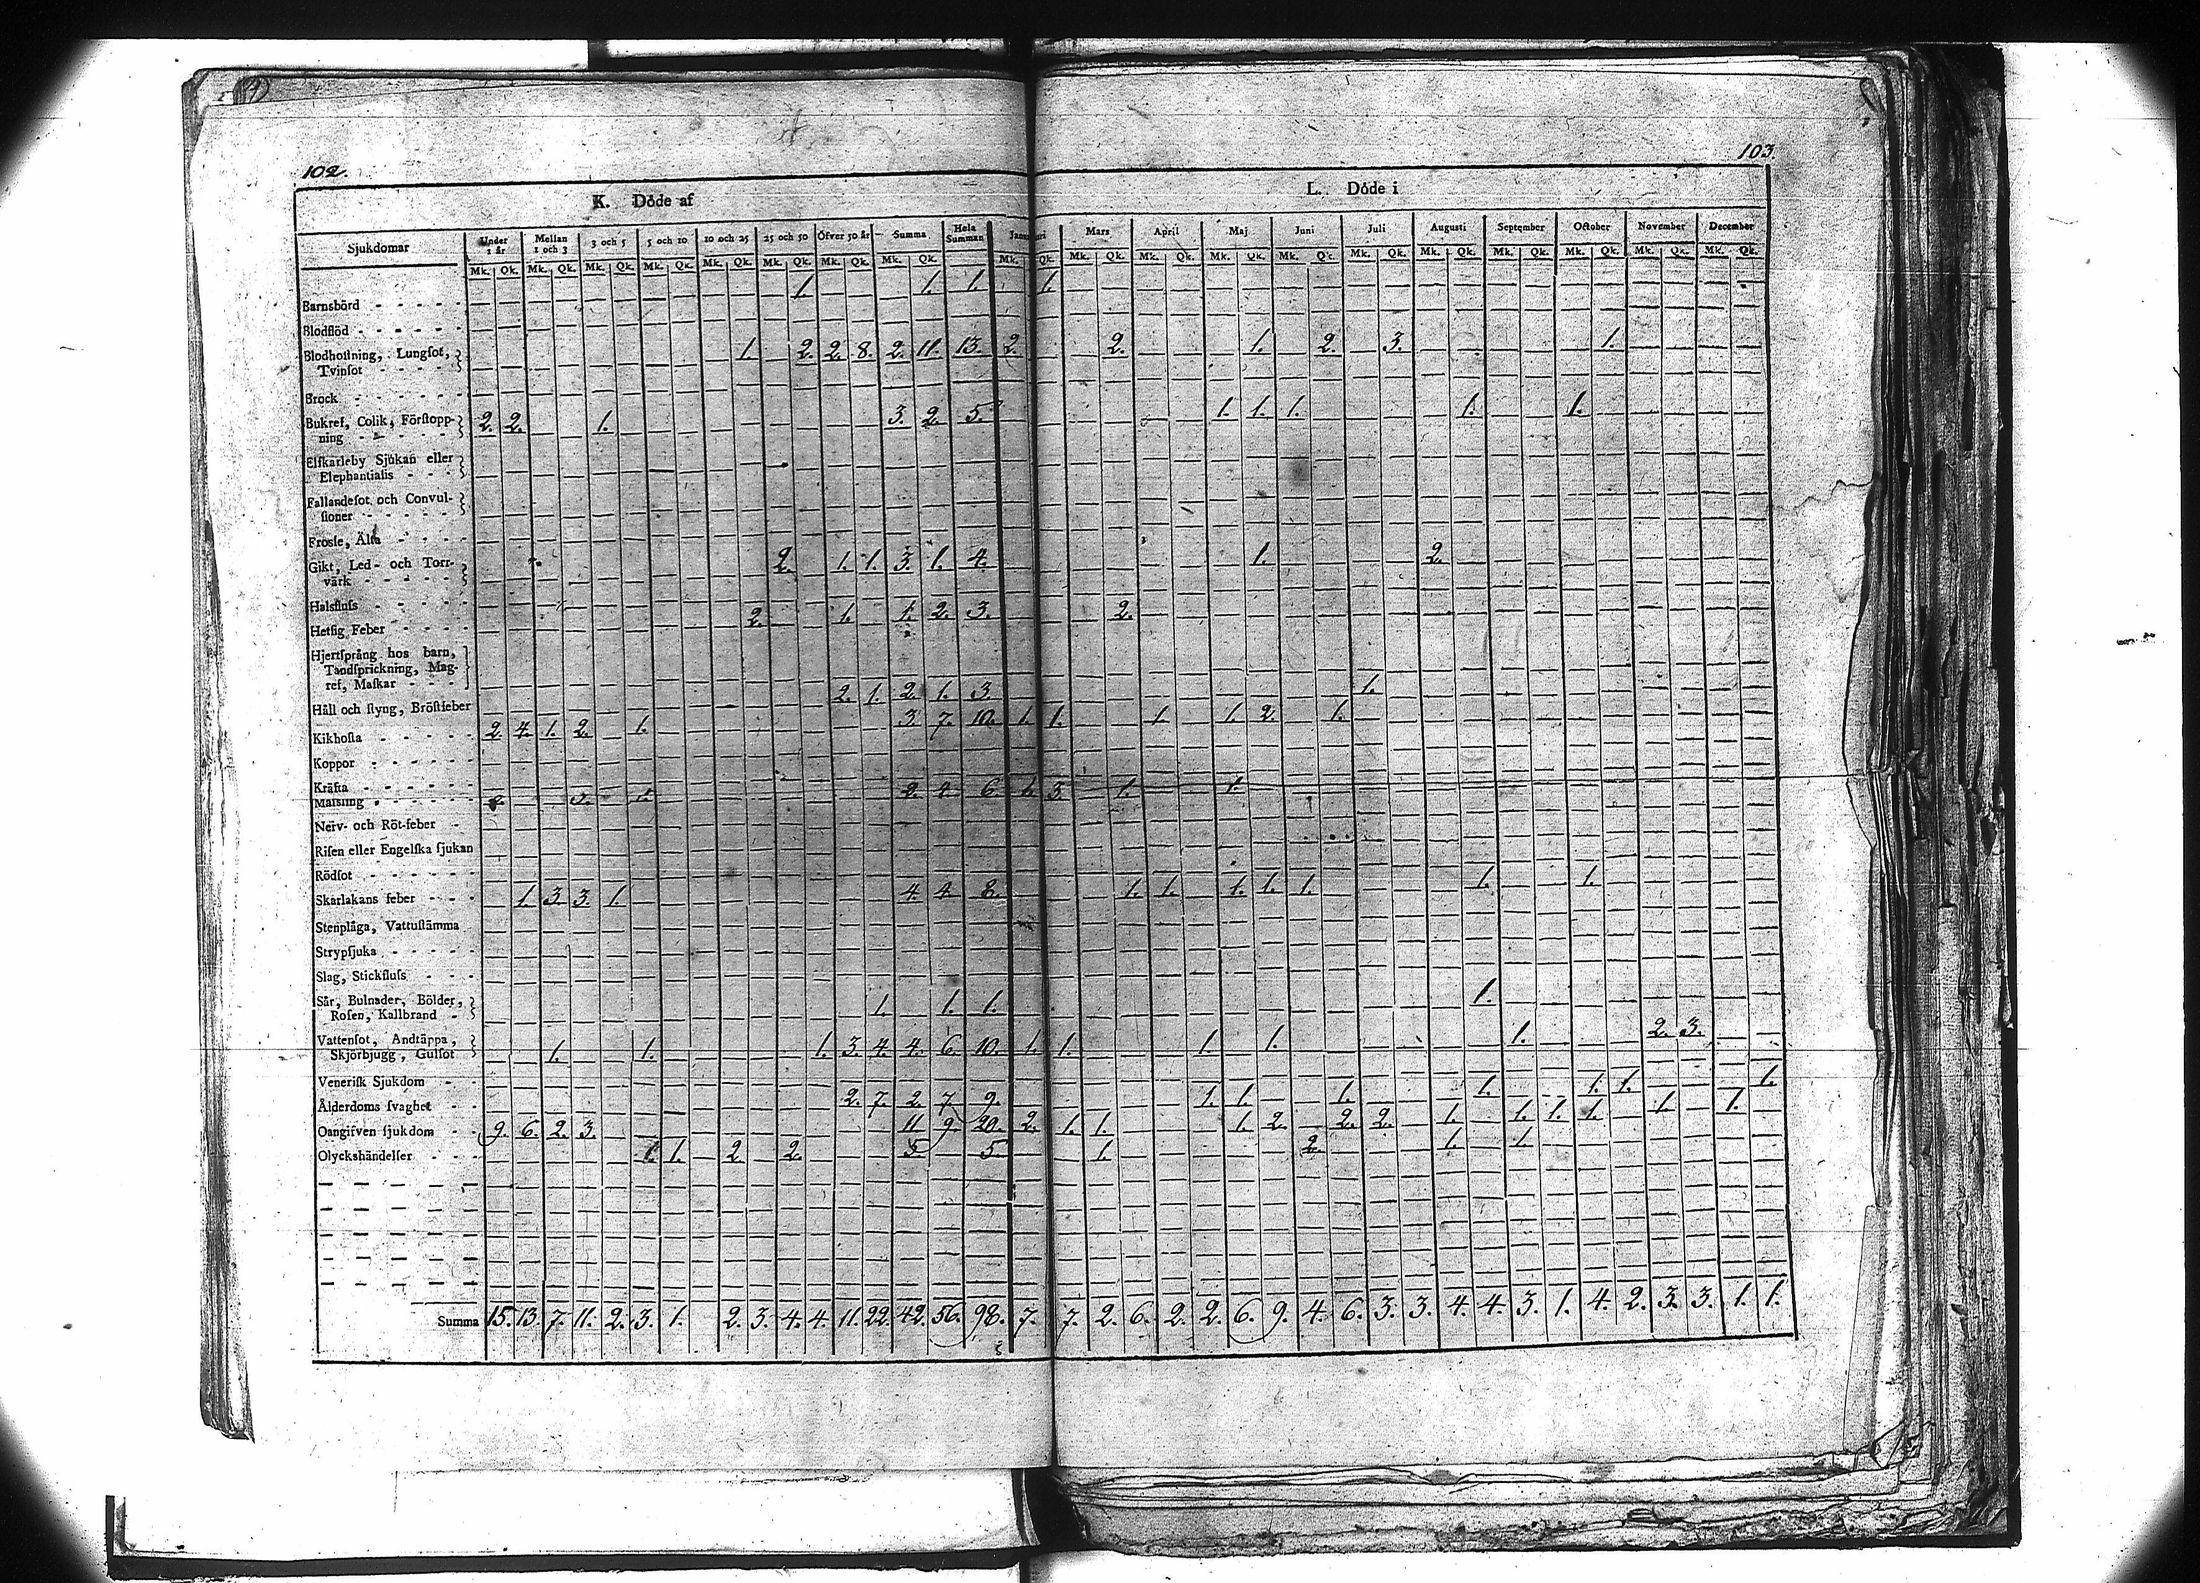 102.
103.
K. Döde af
L. Döde i
Sjukdomar Under 1 år Mellan 1 och 3 3 och 5 5 och 10 10 och 25 25 och 50 Öfver 50 år Summa Hela Summan Januari Mars April Maj Juni Juli Augusti September October November December
Mk. Qk. Mk. Qk. Mk. Qk. Mk. Qk. Mk. Qk. Mk. Qk. Mk. Qk. Mk. Qk. Mk. Qk. Mk. Qk. Mk. Qk. Mk. Qk. Mk. Qk. Mk. Qk. Mk. Qk. Mk. Qk. Mk. Qk. Mk. Qk. Mk. Qk.
Barnsbörd 1. 1. 1. 1.
Blodflöd
Blodhoſtning, Lungſot, Tvinſot 1. 2. 2. 8. 2. 11. 13. 2. 2. 1. 2. 3. 1.
Brock
Bukref, Colik, Förſtoppning 2. 2. 1. 3. 2. 5. 1. 1. 1. 1. 1.
Elſkarleby Sjukan eller Elephantiaſis
Fallandeſot och Convulſioner
Frosſe, Älta
Gikt, Led- och Torrvärk 2. 1. 1. 3. 1. 4. 1. 2.
Halsfluſs
Hetſig Feber 2. 1. 1. 2. 3. 2.
Hjertſprång hos barn, Tandſprickning, Magref, Maſkar
Håll och ſtyng, Bröſtfeber 2. 1. 2. 1. 3. 1.
Kikhoſta 2. 7. 1. 2. 1. 3. 7. 10. 1. 1. 1. 1. 2. 1.
Koppor
Kräfta
Mäſsling 6. 3. 1. 1.
Nerv- och Röt-feber
Riſen eller Engelſka ſjukan
Rödſot
Skarlakans feber 1. 3. 3. 1. 4. 4. 8. 1. 1. 1. 1. 1. 1. 1.
Stenplåga, Vattuſtämma
Strypſjuka
Slag, Stickfluſs
Sår, Bulnader, Bölder, Roſen, Kallbrand 1. 1. 1. 1.
Vattenſot, Andtäppa, Skjörbjugg, Gulſot 1. 1. 1. 3. 4. 4. 6. 10. 1. 1. 1. 1. 1. 2. 3.
Veneriſk Sjukdom
Ålderdoms ſvaghet 2. 7. 2. 7. 9. 1. 1. 1. 1. 1. 1. 1.
Oangifven ſjukdom 9. 6. 2. 3. 11. 9. 20. 2. 1. 1. 1. 2. 2. 2. 1. 1. 1. 1. 1. 1.
Olyckshändelſer 1. 1. 2. 2. 5. 5. 1. 2. 1. 1.
Summa 15. 13. 7. 11. 2. 3. 1. 2. 3. 4. 4. 11. 22. 42. 56. 98. 7. 7. 2. 6. 2. 2. 6. 9. 4. 6. 3. 3. 4. 4. 3. 1. 4. 2. 3. 3. 1. 1.